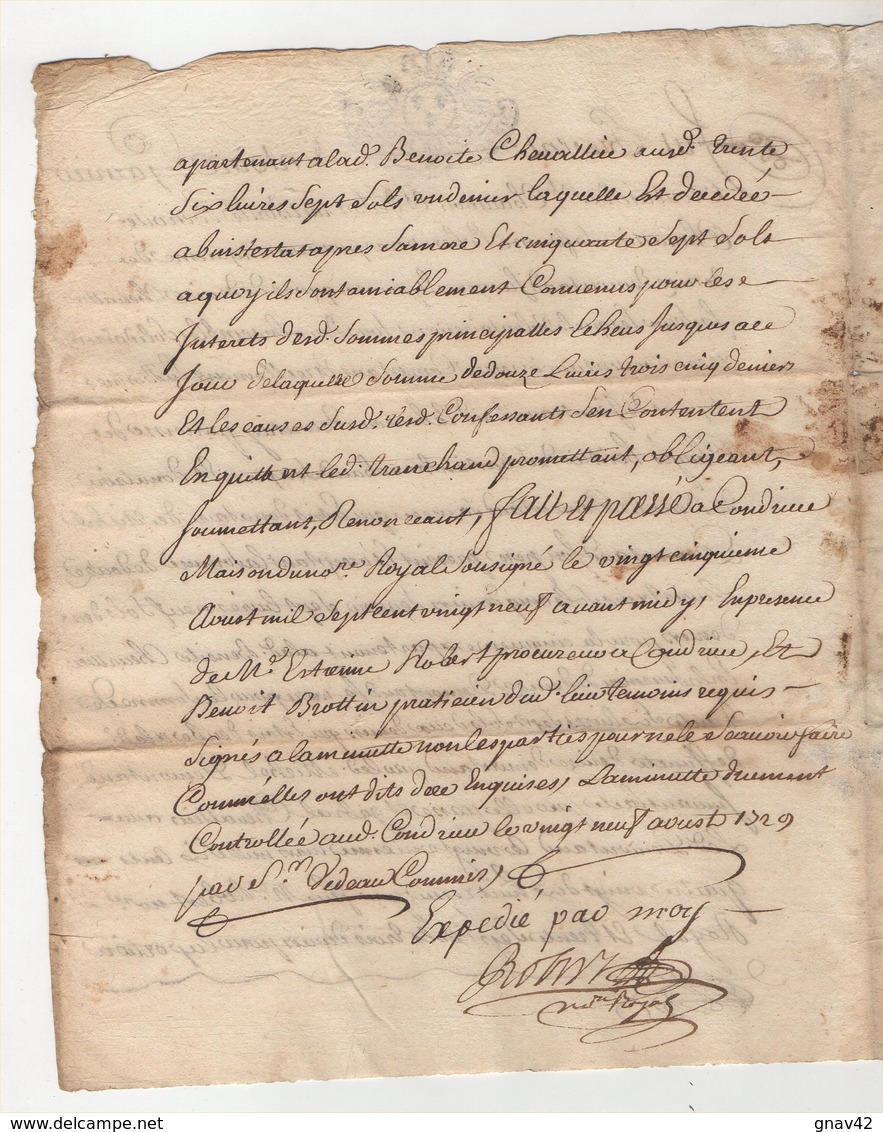 apartenant a lad. Benoite Chevallier aussd. trente
six livres sept sols un denier laquelle Est decedeé
abinstestat apres sa mere Et cinquante sept sols
a quoy ils sont amiablement Convenus pour les
Interets desd. sommes principalles Echeus Jusques a ce
Jour de laquelle somme de douze Livres trois cinq deniers
Et les causes susd. lesd. Confessants s'en Contentent
En quittent led. tranchand promettant, obligeant,
soumettant, Renonceant, fait et passé a Condrieu
Maison du nore. Royal sousigné le vingt cinquieme
Aoust mil sept cent vingt neuf avant midy, En presence
de Me. Estienne Robert procureur a Condrieu, Et
Benoit Brottin praticien dud. lieu temoins requis
signés a la minutte non les parties pour ne le sçavoir faire
Comme elles ont dits de ce Enquises, La minutte duement
Controlleé aud. Condrieu le vingt neuf aoust 1729
par Sr. Vedeau Commis
Expedié par moy
Robert
nore. Royal
delcampe.net
gnav42